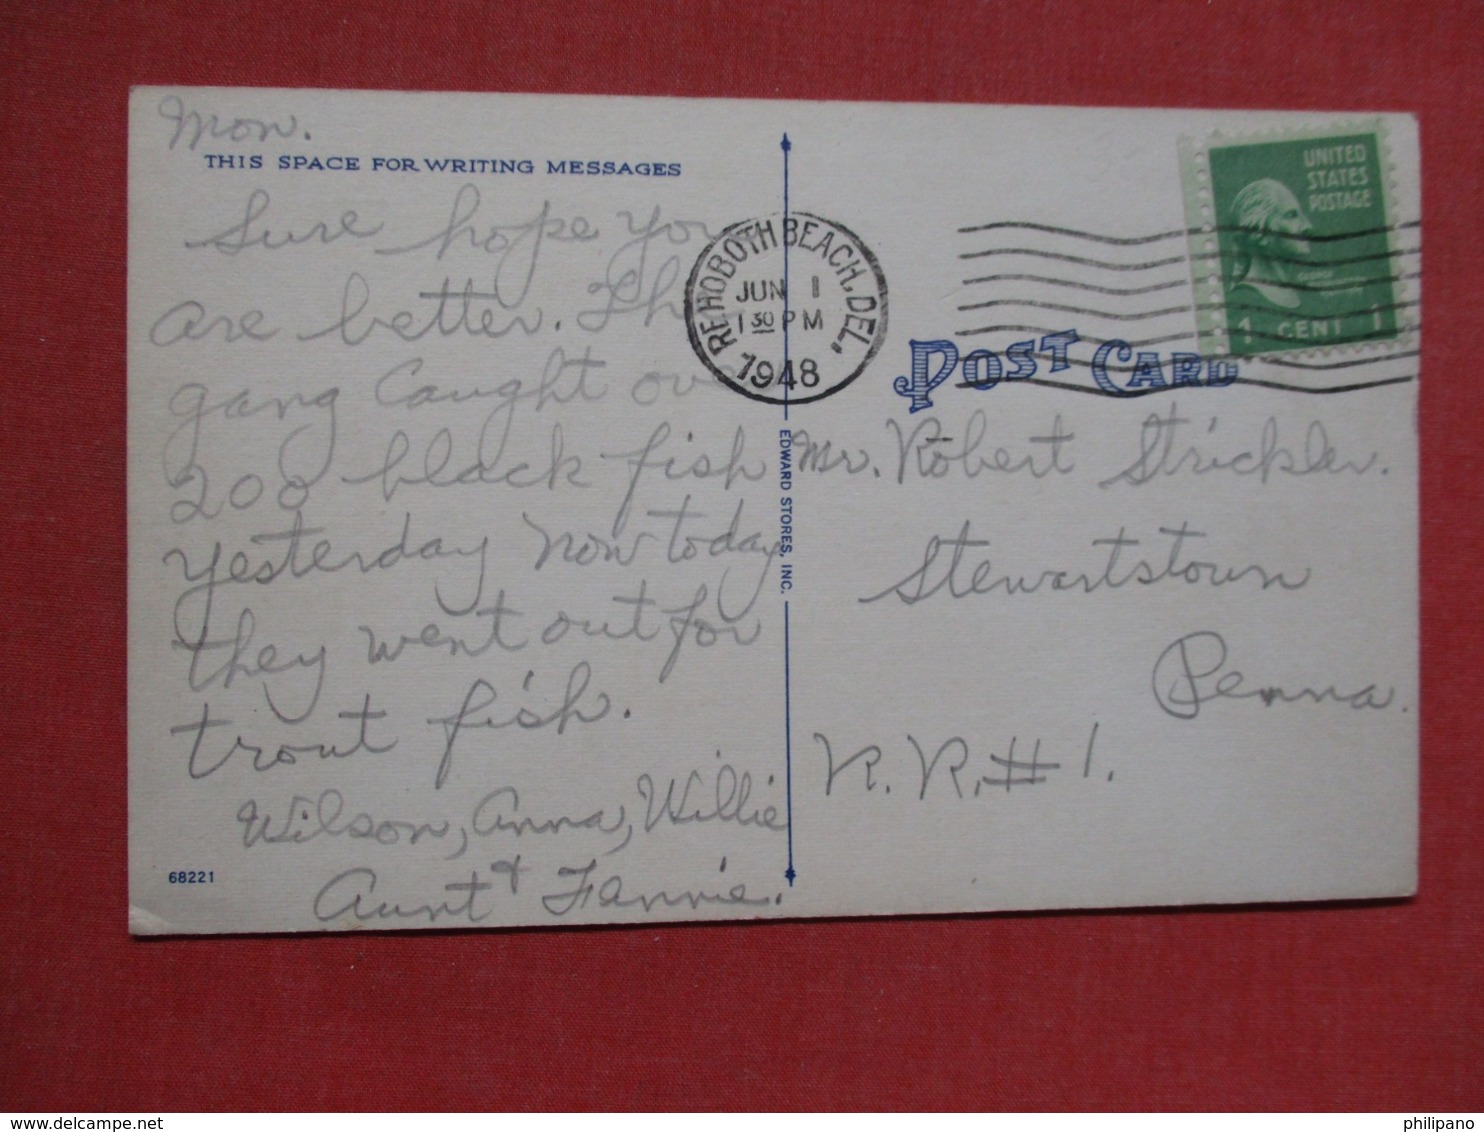 Mon.
THIS SPACE FOR WRITING MESSAGES
Sure hope you
are better. The
gang caught over
200 black fish
yesterday now today
they went out for
trout fish.
Wilson, Anna, Willie
& Aunt Fannie.
68221
EDWARD STORES, INC.
REHOBOTH BEACH, DEL.
JUN 1
1 30 PM
1948
UNITED
STATES
POSTAGE
1 CENT 1
POST CARD
Mr. Robert Strickler.
Stewartstown
Penna.
R. R. # 1.
www.delcampe.net
philipano